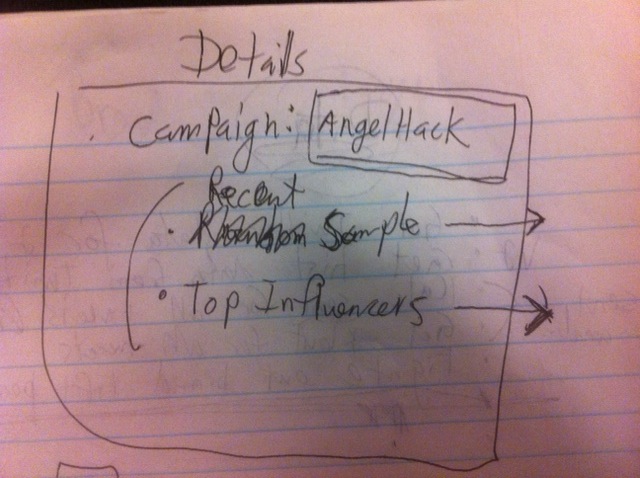 Details
Campaign: AngelHack
Recent
• Sample
• Top Influencers